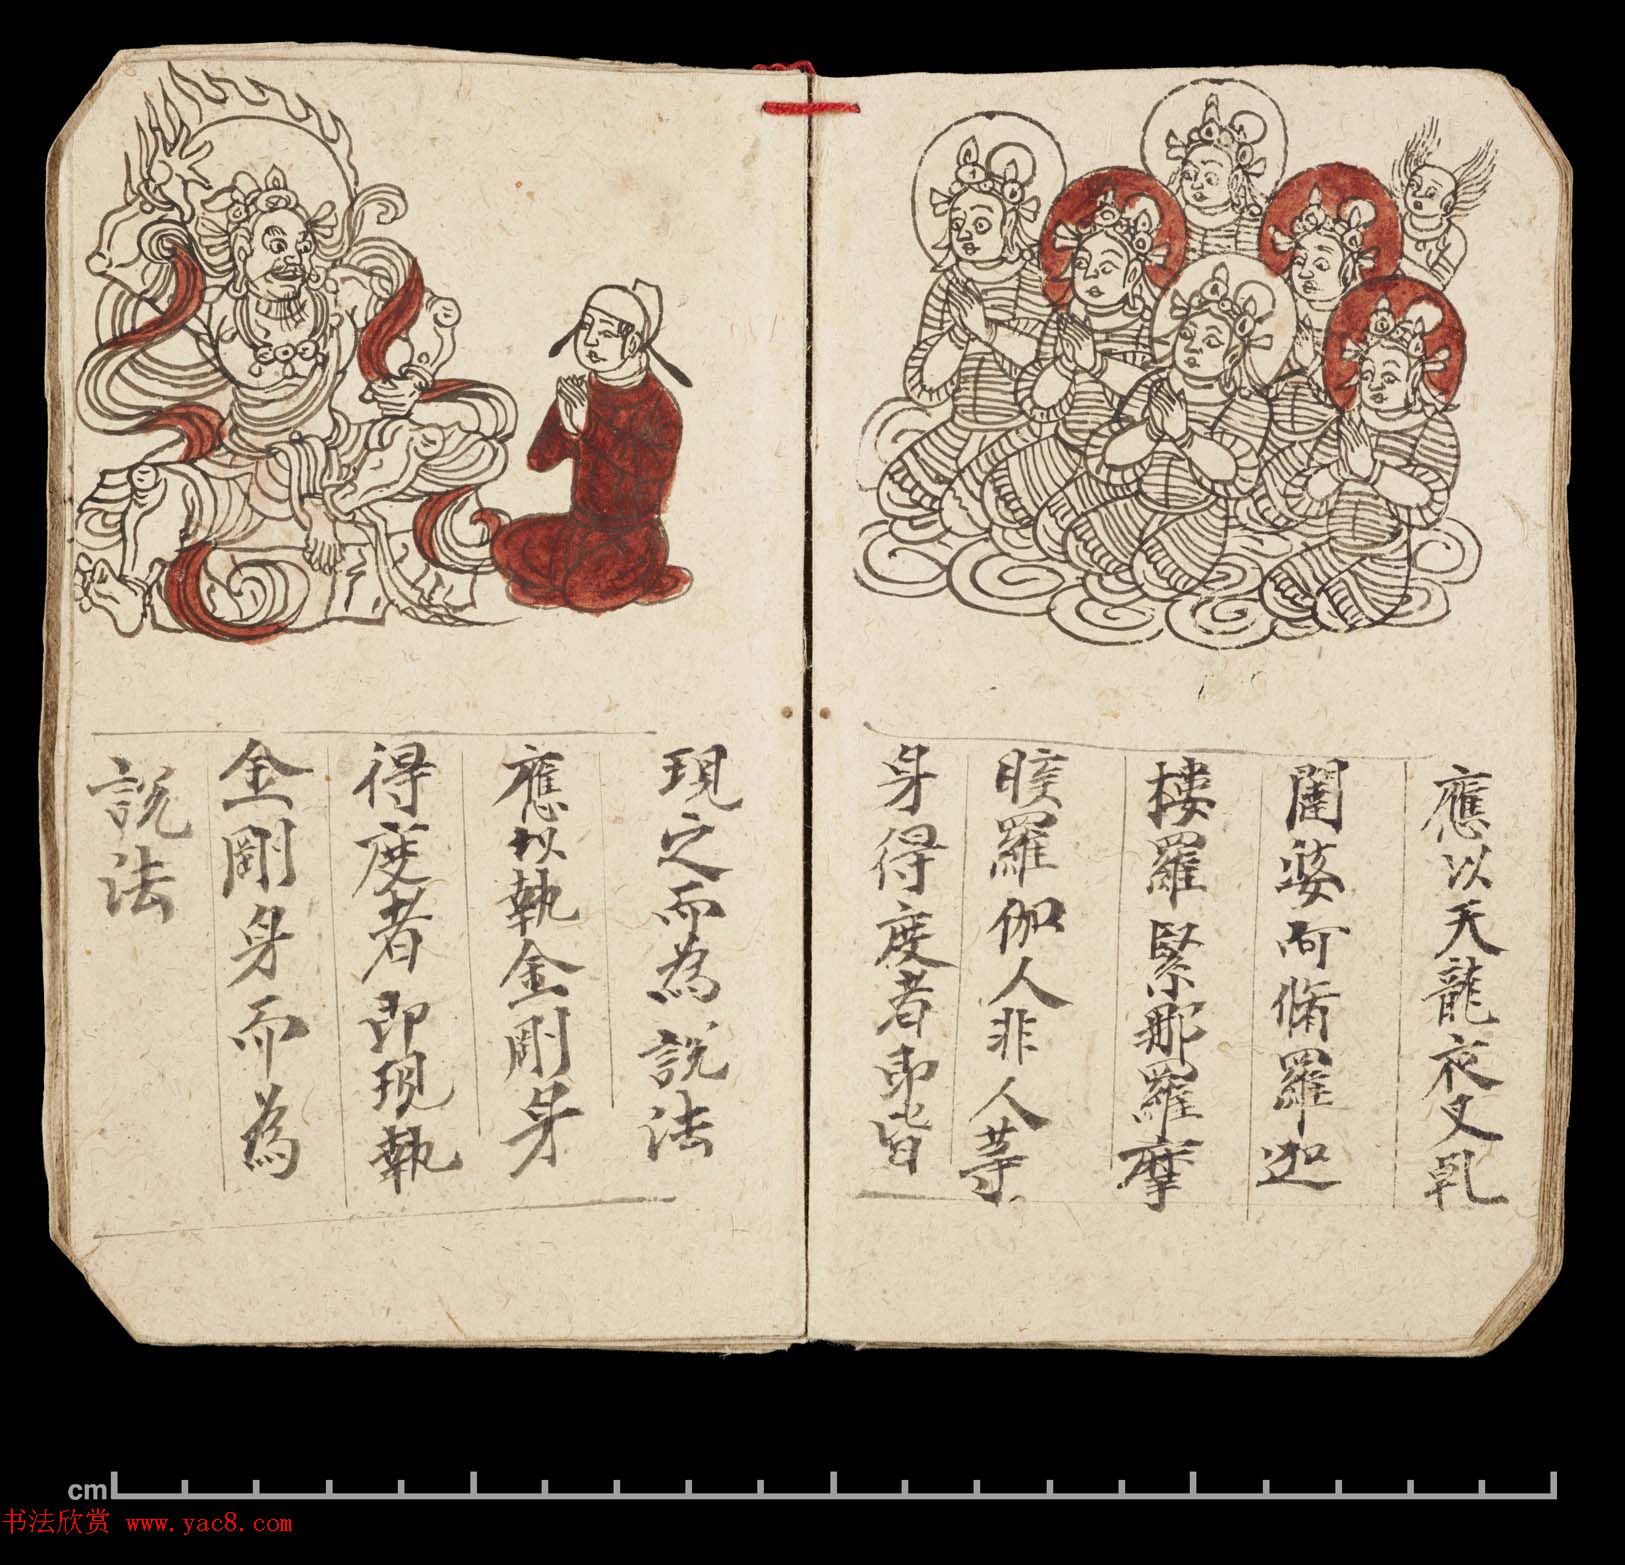 應以天龍夜叉乹
闥婆阿脩羅迦
樓羅緊那羅摩
睺羅伽人非人等
身得度者即皆
現之而為說法
應以執金剛身
得度者即現執
金剛身而為
說法
cm
书法欣赏 www.yac8.com